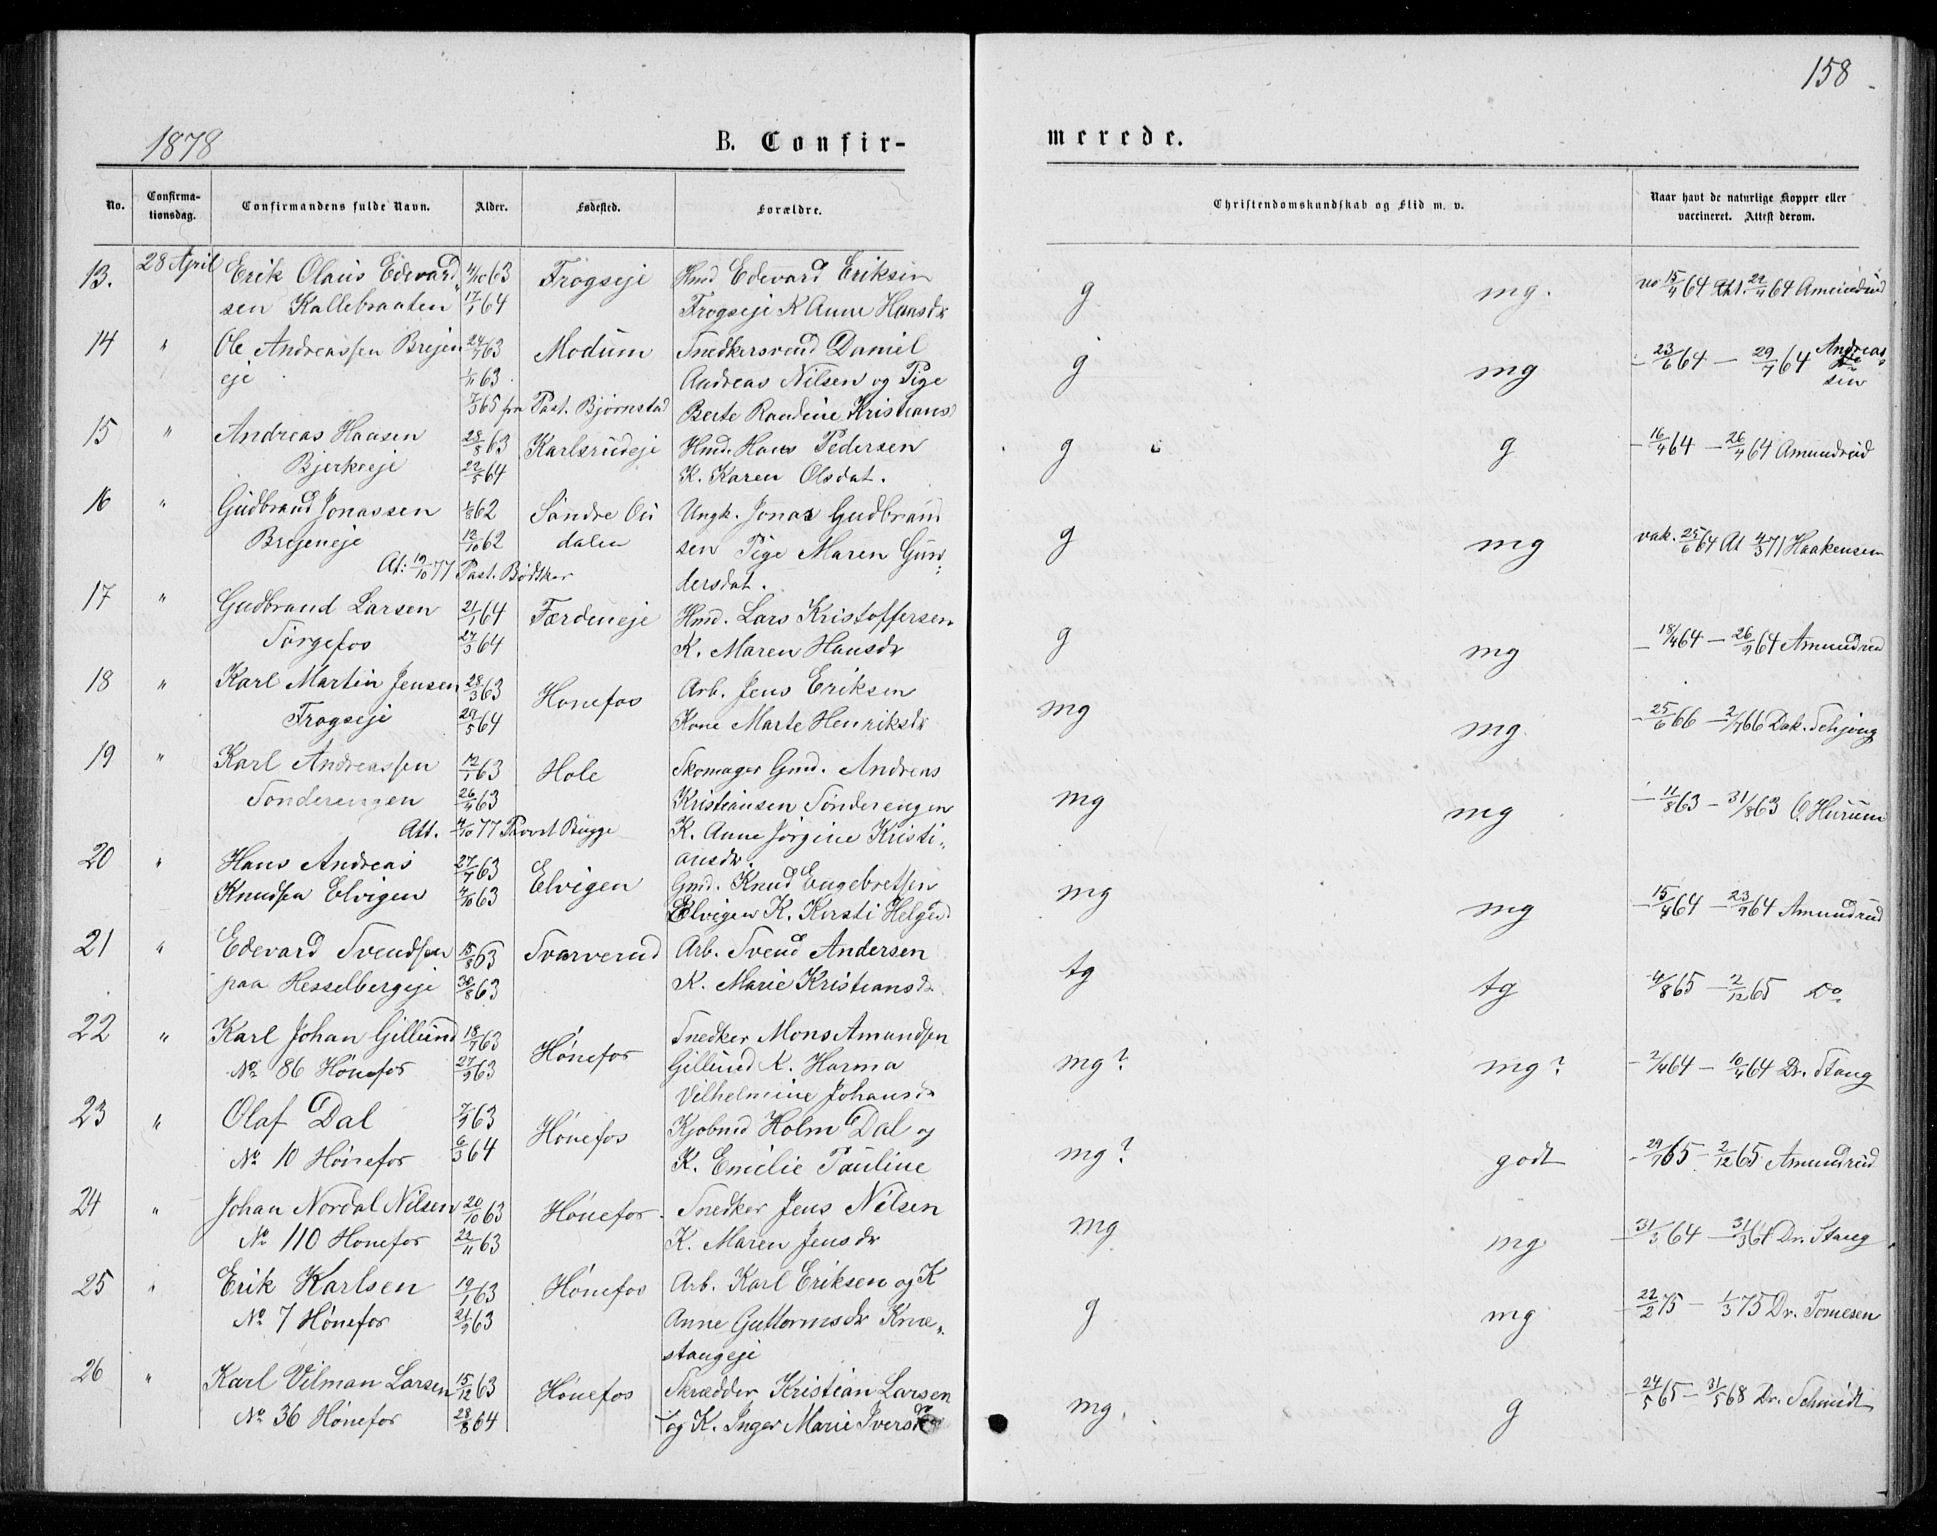 158
1878
B. Confir-
merede.
No.
Confirma-
tionsdag.
Confirmandens fulde Navn.
Alder.
Fødested.
Forældre.
Christendomskundskab og Flid m. v.
Naar havt de naturlige Kopper eller
vaccineret. Attest derom.
13. 28 April Erik Olaus Edevard- 63 Frogseje Hmd Edevard Eriksen g mg. 15/4 64 29/4 64 Amundrud
sen Kallebraaten 17/1 64 Frogseje K Anne Hansdr
14 " Ole Andreassen Brejen 24/7 63 Modum Snedkersvend Daniel g mg - 23/6 64 - 29/7 64 Andreas
eje 63 Andreas Nilsen og Pige sen
65 fra Past. Bjørnstad Berte Randine Kristians
15 " Andreas Hansen 28/8 63 Karlsrudeje Hmd. Hans Pedersen g g - 16/4 64 - 26/4 64 Amundrud
Bjerkeeje 22/5 64 K. Karen Olsdat.
16 " Gudbrand Jonassen 62 Søndre Ou Ungk. Jonas Gudbrand g mg vak. 25/6 64 At 4/3 71 Haakensen
Brejeneje 12/10 62 dalen sen Pige Maren Gun-
At: 19/10 77 Past. Bødtker dersdat.
17 " Gudbrand Larsen 21/1 64 Færdeneje Hmd. Lars Kristoffersen g mg - 18/4 64 - 26/4 64 Amundrud
Sørgefos 27/3 64 K. Maren Hansdr
18 " Karl Martin Jensen 28/3 63 Honefos Arb. Jens Eriksen mg mg - 25/6 66 - 2/7 66 Dok. Schjøng
Frogseje 29/5 64 Kone Marte Henriksdr
19 " Karl Andreassen 12/1 63 Hole Skomager Gmd. Andreas mg mg - 11/8 63 - 31/8 63 O. Hurum
Sonderengen 26/4 63 Kristiansen Sonderengen
Att. 4/10 77 Provst Bugge K. Anne Jørgine Kristi-
ansdr
20 " Hans Andreas 27/7 63 Elvigen Gmd. Knud Engebretsen mg mg - 15/4 64 - 23/4 64 Amundrud
Knudsen Elvigen 4/10 63 Elvigen K. Kirsti Helgesd
21 " Edevard Svendsen 15/8 63 Svarverud Arb. Svend Andersen tg tg 4/8 65 - 2/12 65 Do
paa Hesselbergeje 30/8 63 K. Marie Kristiansdr
22 " Karl Johan Gillund 18/7 63 Hønefos Snedker Mons Amundsen mg? mg? - 2/4 64 - 10/4 64 Dr. Stang
No 86 Hønefos 27/9 63 Gillund K. Harma
Vilhelmine Johansdr
23 " Olaf Dal 63 Hønefos Kjøbmd Holm Dal og mg? godt - 29/7 65 - 2/12 65 Amundrud
No 10 Hønefos 6/3 64 K. Emelie Pauline
24 " Johan Nordal Nilsen 20/10 63 Hønefos. Snedker Jens Nilsen mg mg - 31/3 64 - 31/3 64 Dr. Stang
No 110 Honefos 22/11 63 K. Maren Jensdr
25 " Erik Karlsen 19/1 63 Hønefos Arb. Karl Eriksen og K g mg - 22/2 75 - 1/3 75 Dr. Tomesen
No 7 Hønefos 21/9 63 Anne Guttormsdr Knæ-
stangeje
26 " Karl Vilman Larsen 15/12 63 Hønefos Skrædder Kristian Larsen mg. g - 24/5 65 - 31/5 68 Dr. Schmidt
No 36 Hønefos 28/8 64 og K. Inger Marie Iversdr